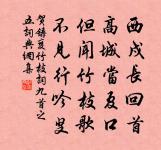 西戍長回首
高城當夏口
但聞竹枝歌
不見行吟叟
賀鑄變竹枝詞九首之
五詞典網集